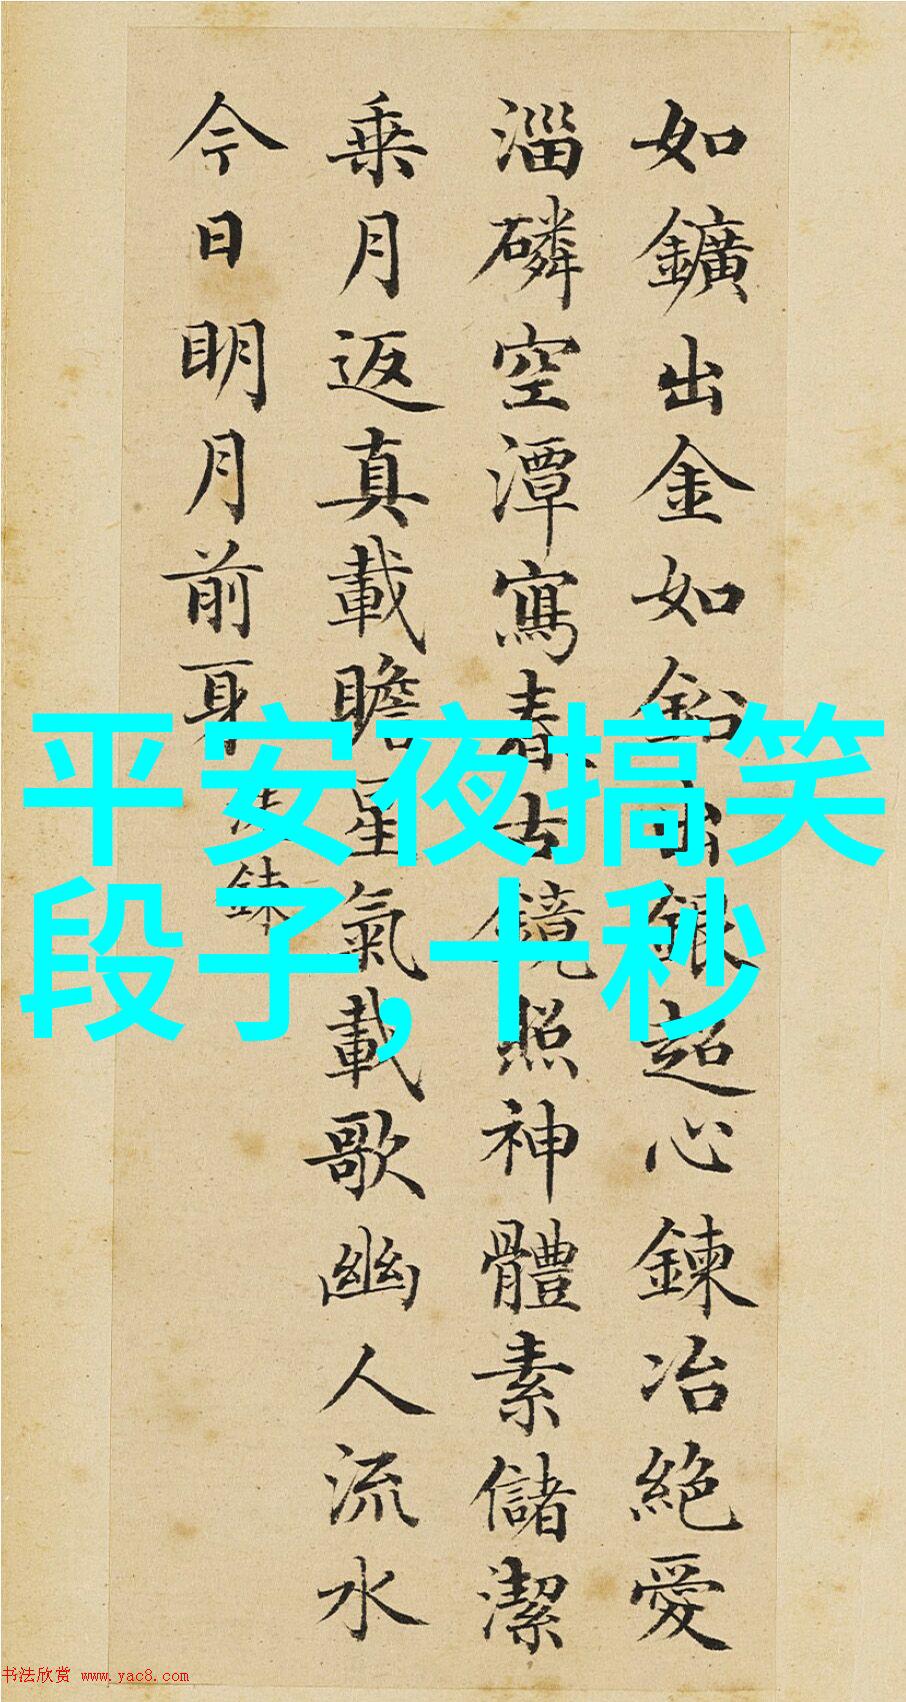 如鑛出金如鉛出銀超心鍊冶絕愛
淄磷空潭寫春古鏡照神體素儲潔
乘月返真載瞻星氣載歌幽人流水
今日明月前身
鍊
平安夜搞笑
段子,十秒
书法欣赏 www.yac8.com